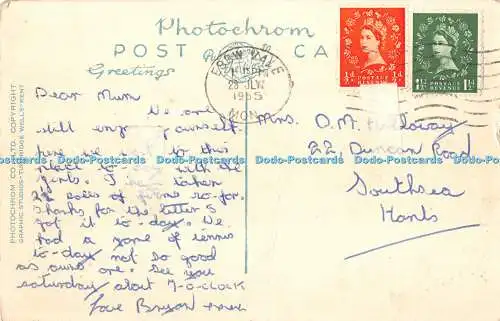 Photochrom
POST CA
Greetings
EBBW VALE
28 JLY
1955
MON
½d POSTAGE REVENUE ½d
1½d POSTAGE REVENUE 1½d
PHOTOCHROM CO. LTD. COPYRIGHT
GRAPHIC STUDIOS-TUNBRIDGE WELLS-KENT
Dear Mum
We are
still enjoy yourself.
here to this
next to with the
Gents. I taken
22 rolls of so-far.
thanks for the letter I
got it to-day. We
had a game of tennis
to-day not so good
as ours one. See you
saturday about 7-O-CLOCK
love Bryan
Mrs. D.M. Holloway
22 Duncan Road
Southsea
Hants
Dodo-Postcards Dodo-Postcards Dodo-Postcards Dodo-Postcards Dodo-Postcards Dodo-Postcards